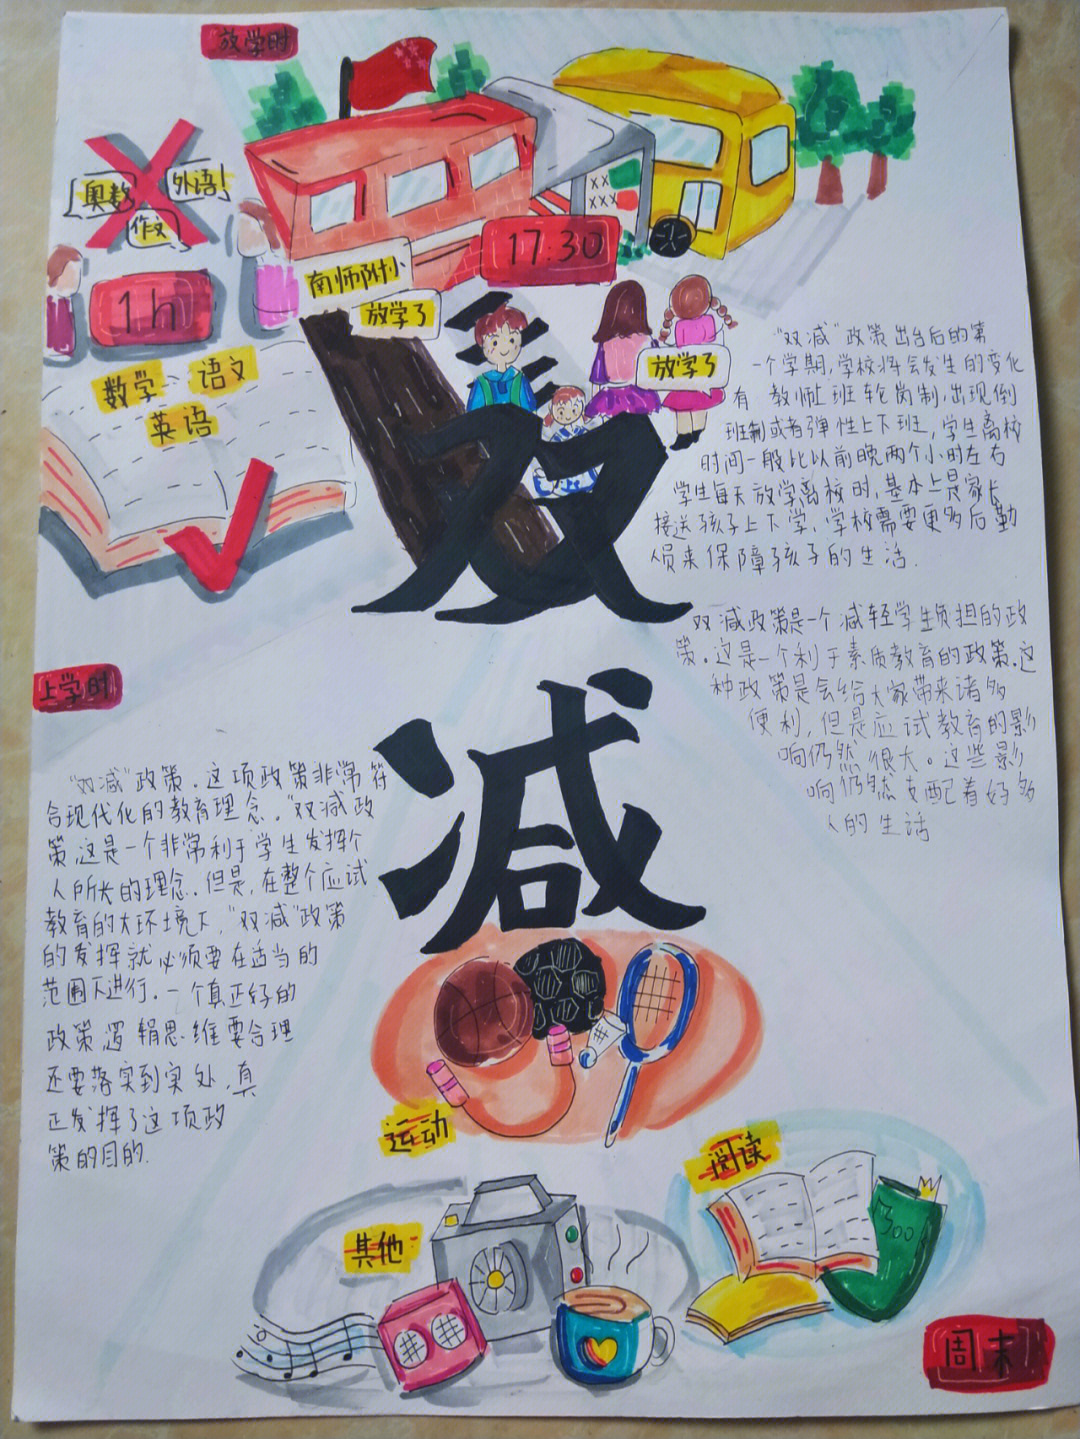 放学时
奥数
外语!
作文
1h
南师附小
放学了
17:30
XX
XXX
放学了
数学、语文
英语
双
"双减"政策出台后的第
一个学期,学校将会发生的变化
有 教师上班轮岗制,出现倒
班制或者弹性上下班,学生离校
时间一般比以前晚两个小时左右
学生每天放学离校时,基本上是家长
接送孩子上下学、学校需要更多后勤
人员来保障孩子的生活.
双减政策是一个减轻学生负担的政
策.这是一个利于素质教育的政策.这
种政策是会给大家带来诸多
便利,但是应试教育的影
响仍然很大。这些影
响仍然支配着好多
人的生活
上学时
减
"双减"政策.这项政策非常符
合现代化的教育理念."双减政
策,这是一个非常利于学生发挥个
人所长的理念.但是,在整个应试
教育的大环境下,"双减"政策
的发挥就必须要在适当的
范围下进行.一个真正好的
政策逻辑思维要合理
还要落实到实处,真
正发挥了这项政
策的目的.
运动
阅读
300
其他
周末